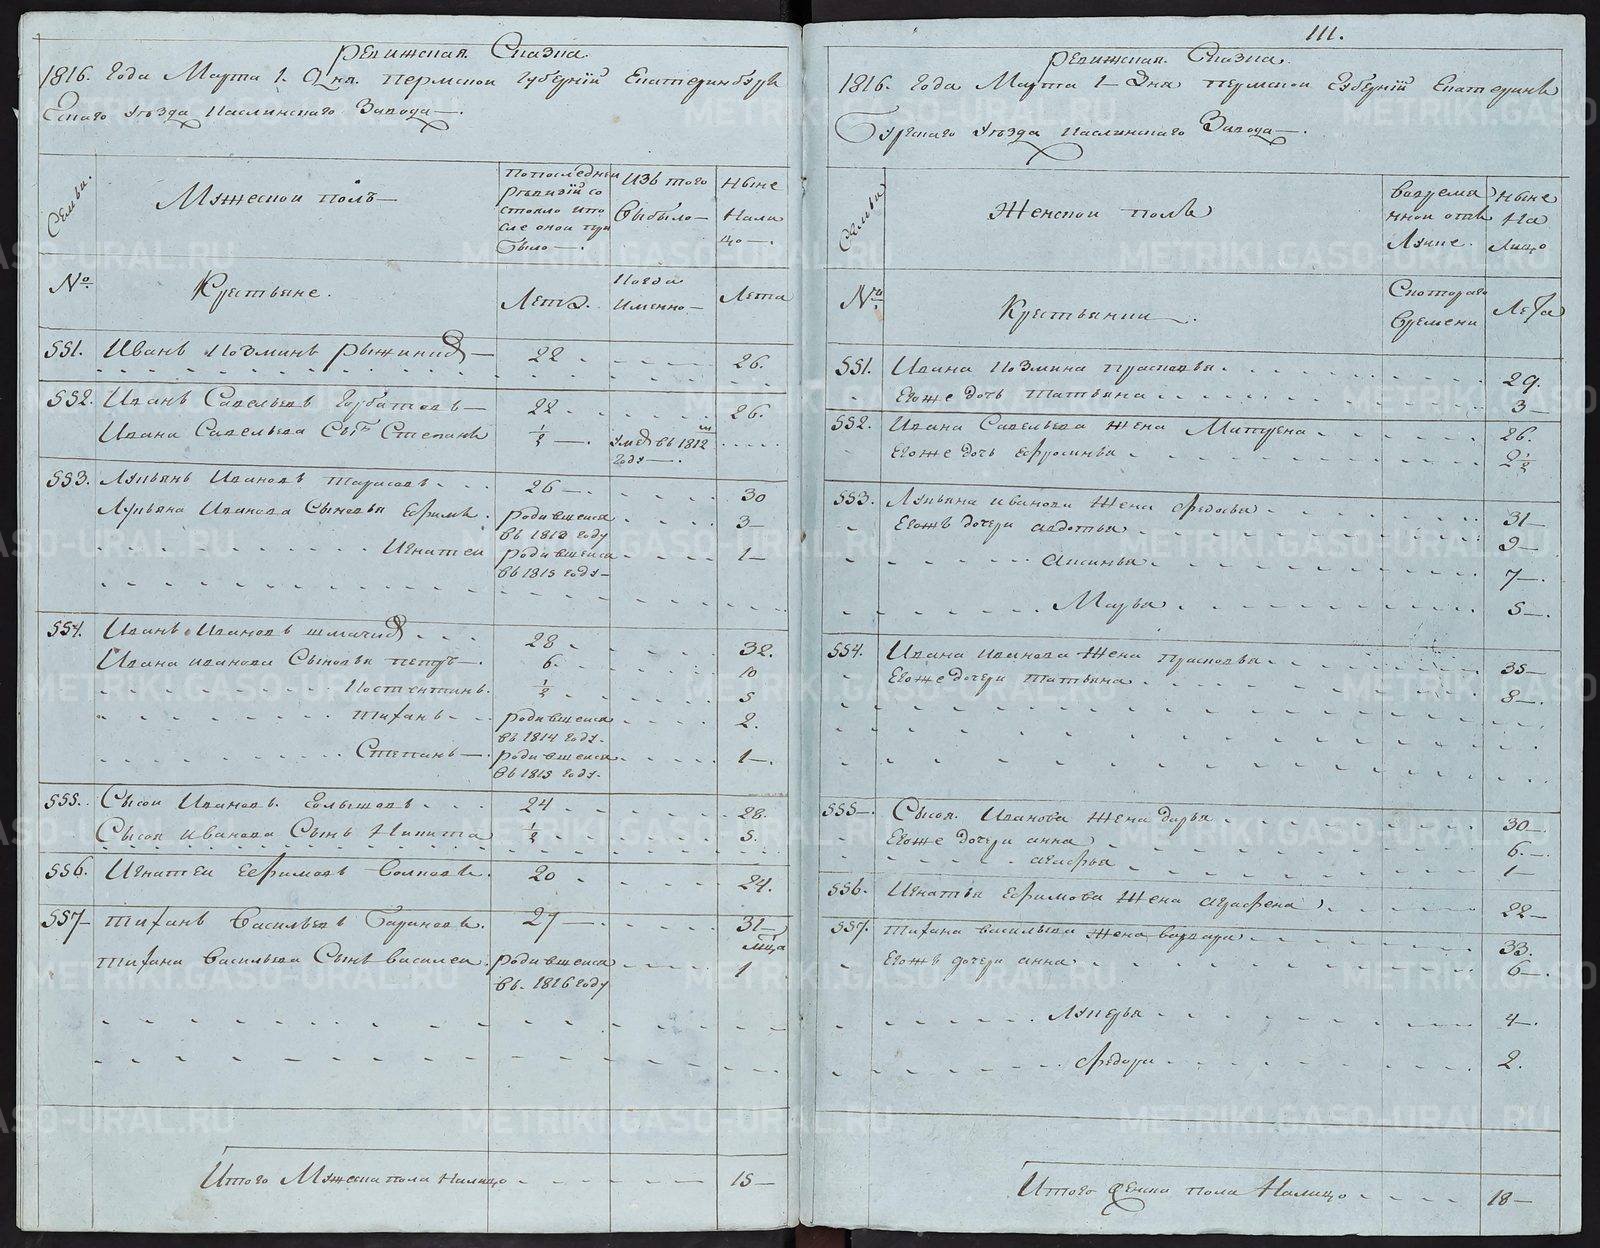 Ревижская Сказка
1816. Года Марта 1. Дня. Пермской Губернïи Екатеринбург
Скаго Уезда Каслинскаго Завода
Семьи.
Мужеской полъ
По последней ревизïи состояло и после оной прибыло
Изъ того выбыло
Ныне налицо
№
Крестьяне.
Лета.
Когда имянно
Лета
551. Иванъ Козминъ 22 26.
552. Иванъ Савельевъ Горбатовъ 22 26.
Ивана Савельева Сынъ Степанъ ½ умре въ 1812м году
553. Лукьянъ Ивановъ Тарасовъ 26 30
Лукьяна Иванова Сыновья Ефимъ родившейся въ 1813 году 3
Игнатей родившейся въ 1815 году 1
554. Иванъ Ивановъ 28 32.
Ивана Иванова Сыновья Петръ 6 10
Костентинъ ½ 5
Тиханъ родившейся въ 1814 году 2.
Степанъ родившейся въ 1815 году 1
555. Сысой Ивановъ 24 28.
Сысоя Иванова Сынъ Никита ½ 5.
556. Игнатей Ефимовъ Волковъ 20 24.
557 Тиханъ Васильевъ Барановъ 27 31
Тихана Васильева Сынъ Василей родившейся въ 1816 году мца 1
Итого Мужеска пола Налицо 15
111.
Ревижская Сказка
1816. Года Марта 1 Дня Пермской Губернïи Екатерин
Бургскаго Уезда Каслинскаго Завода
Семьи
Женской полъ
Во временной отлучке.
Ныне на лицо
№
Крестьянки
Скотораго времени
Лета
551. Ивана Козмина Прасковья 29.
Егоже дочь Татьяна 3
552. Ивана Савельева жена Матрена 26.
Егоже дочь Ефросинья 2½
553. Лукьяна Иванова жена Федосья 31
Егожъ дочери Авдотья 9
Аксинья 7
Марья 5
554. Ивана Иванова жена Прасковья 35
Егоже дочери Татьяна 8
555 Сысоя Иванова жена Дарья 30
Егоже дочери Анна 6.
Агафья 1
556. Игнатья Ефимова жена Аграфена 22
557. Тихана Васильева жена Варвара 33.
Егожъ дочери Анна 6
Лукерья 4
Федора 2.
Итого Женска пола Налицо 18
METRIKI.GASO-URAL.RU